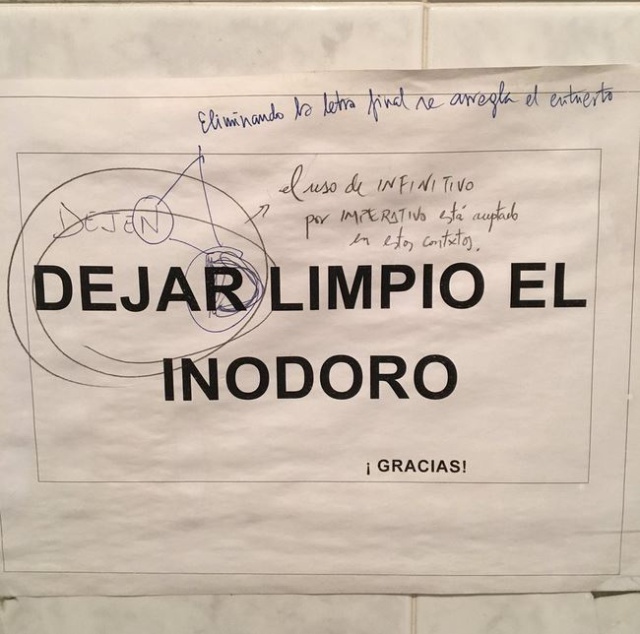 Eliminando la letra final se arregla el entuerto
el uso de INFINITIVO
por IMPERATIVO está aceptado
en estos contextos.
DEJEN
DEJAR LIMPIO EL
INODORO
¡ GRACIAS!